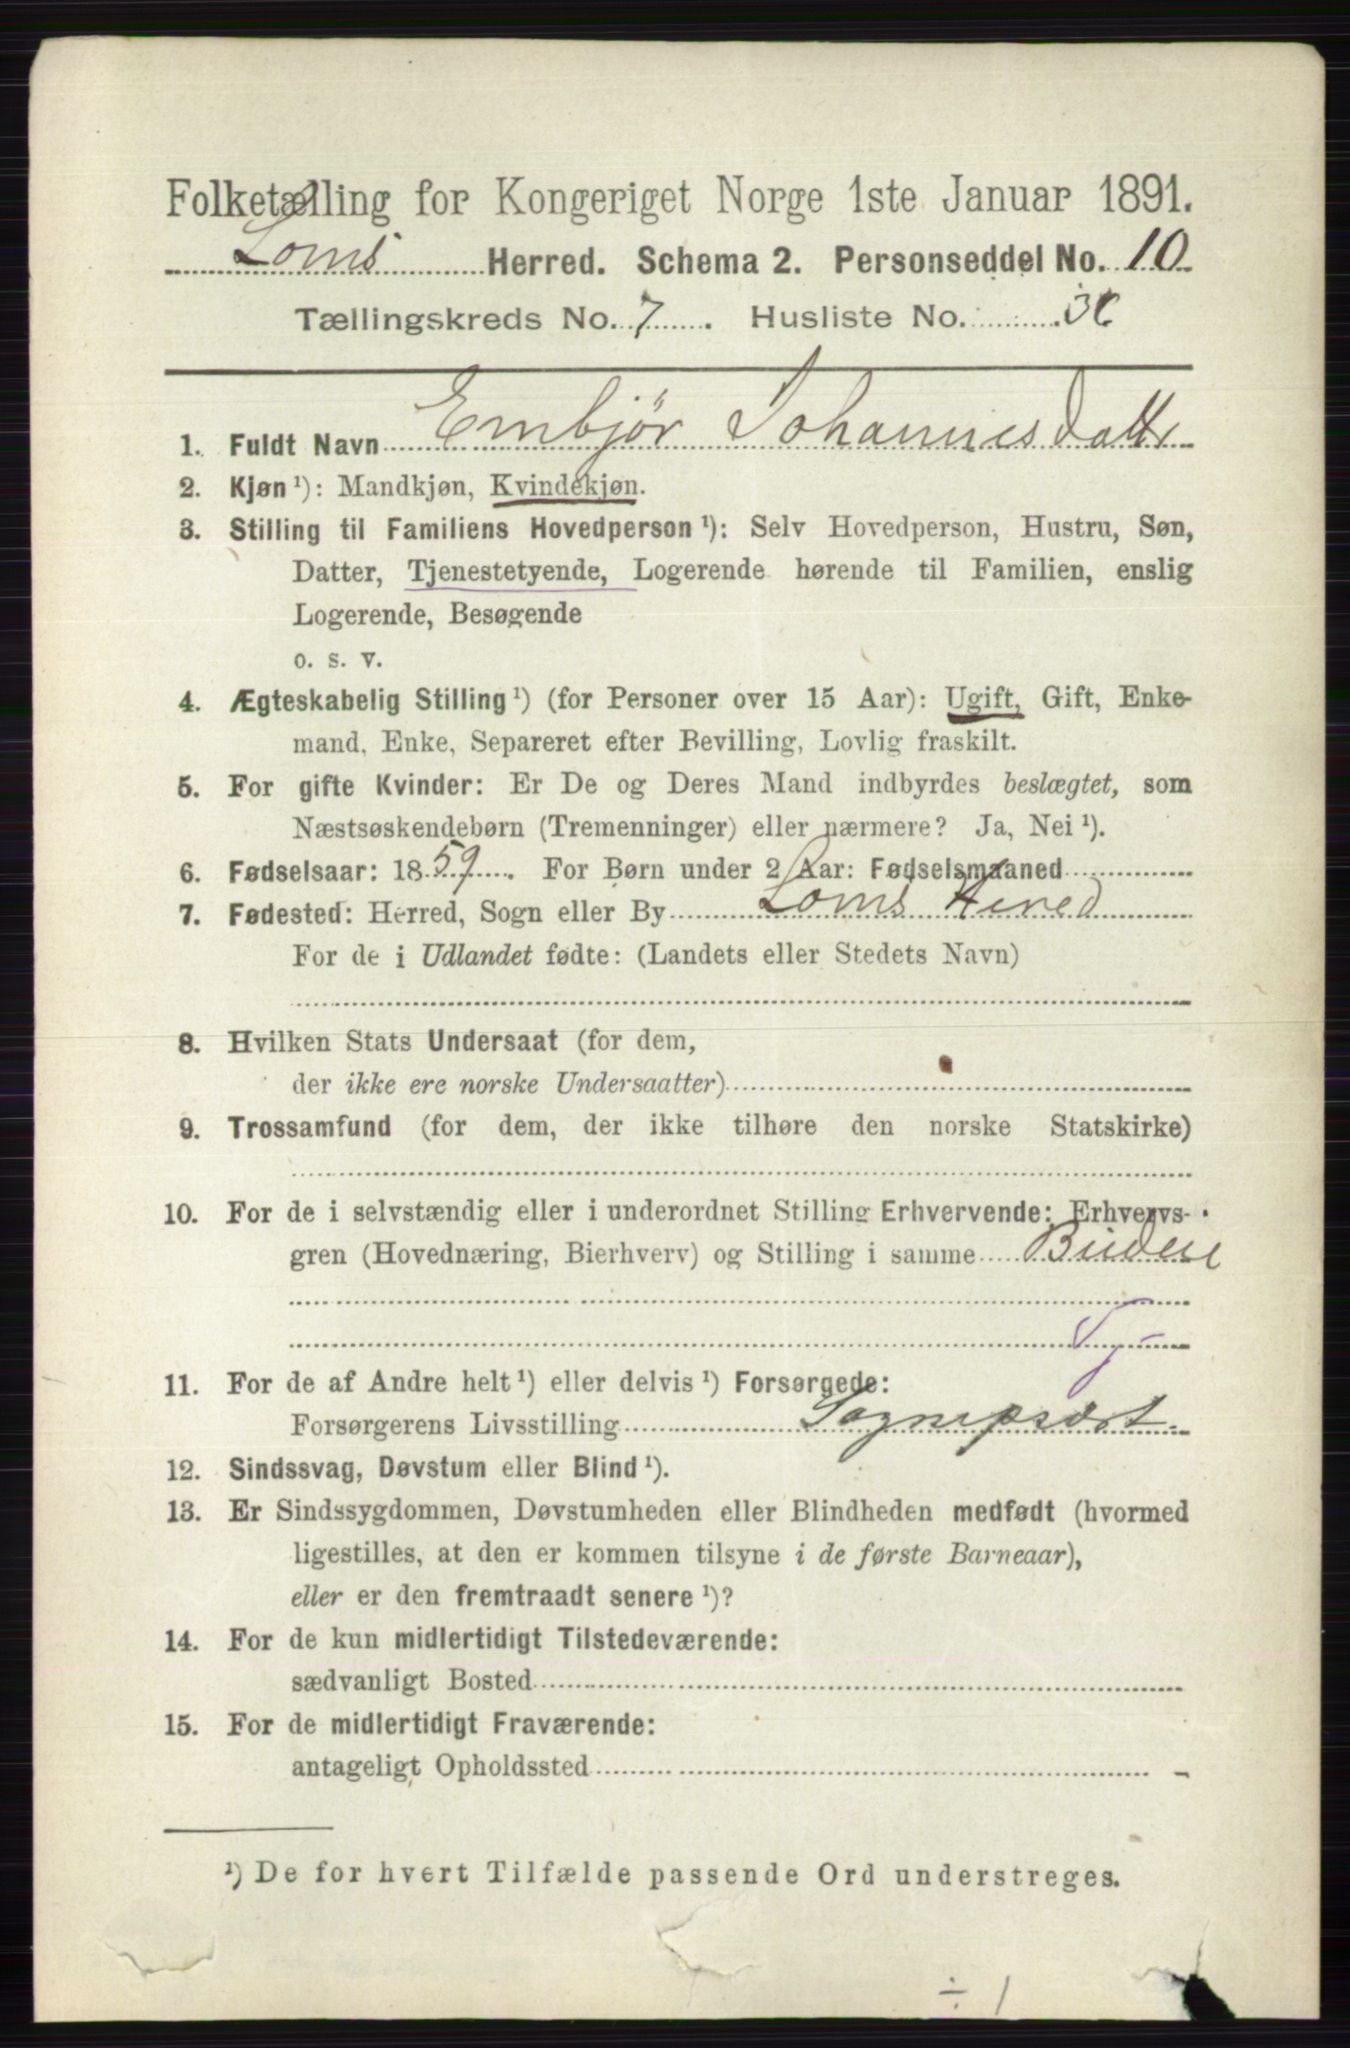 Folketælling for Kongeriget Norge 1ste Januar 1891.
Loms Herred. Schema 2. Personseddel No. 10
Tællingskreds No. 7. Husliste No.
1. Fuldt Navn Embjør Johannesdatter
2. Kjøn ¹): Mandkjøn, Kvindekjøn.
3. Stilling til Familiens Hovedperson ¹): Selv Hovedperson, Hustru, Søn,
Datter, Tjenestetyende, Logerende hørende til Familien, enslig
Logerende, Besøgende
o. s. v.
4. Ægteskabelig Stilling ¹) (for Personer over 15 Aar): Ugift, Gift, Enke-
mand, Enke, Separeret efter Bevilling, Lovlig fraskilt.
5. For gifte Kvinder: Er De og Deres Mand indbyrdes beslægtet, som
Næstsøskendebørn (Tremenninger) eller nærmere? Ja, Nei ¹).
6. Fødselsaar: 1859. For Børn under 2 Aar: Fødselsmaaned
7. Fødested: Herred, Sogn eller By Loms Herred
For de i Udlandet fødte: (Landets eller Stedets Navn)
8. Hvilken Stats Undersaat (for dem,
der ikke ere norske Undersaatter)
9. Trossamfund (for dem, der ikke tilhøre den norske Statskirke)
10. For de i selvstændig eller i underordnet Stilling Erhvervende: Erhvervs-
gren (Hovednæring, Bierhverv) og Stilling i samme Budeie
11. For de af Andre helt ¹) eller delvis ¹) Forsørgede:
Forsørgerens Livsstilling Sognepræst
12. Sindssvag, Døvstum eller Blind ¹).
13. Er Sindssygdommen, Døvstumheden eller Blindheden medfødt (hvormed
ligestilles, at den er kommen tilsyne i de første Barneaar),
eller er den fremtraadt senere ¹)?
14. For de kun midlertidigt Tilstedeværende:
sædvanligt Bosted
15. For de midlertidigt Fraværende:
antageligt Opholdssted
¹) De for hvert Tilfælde passende Ord understreges.
÷ 1